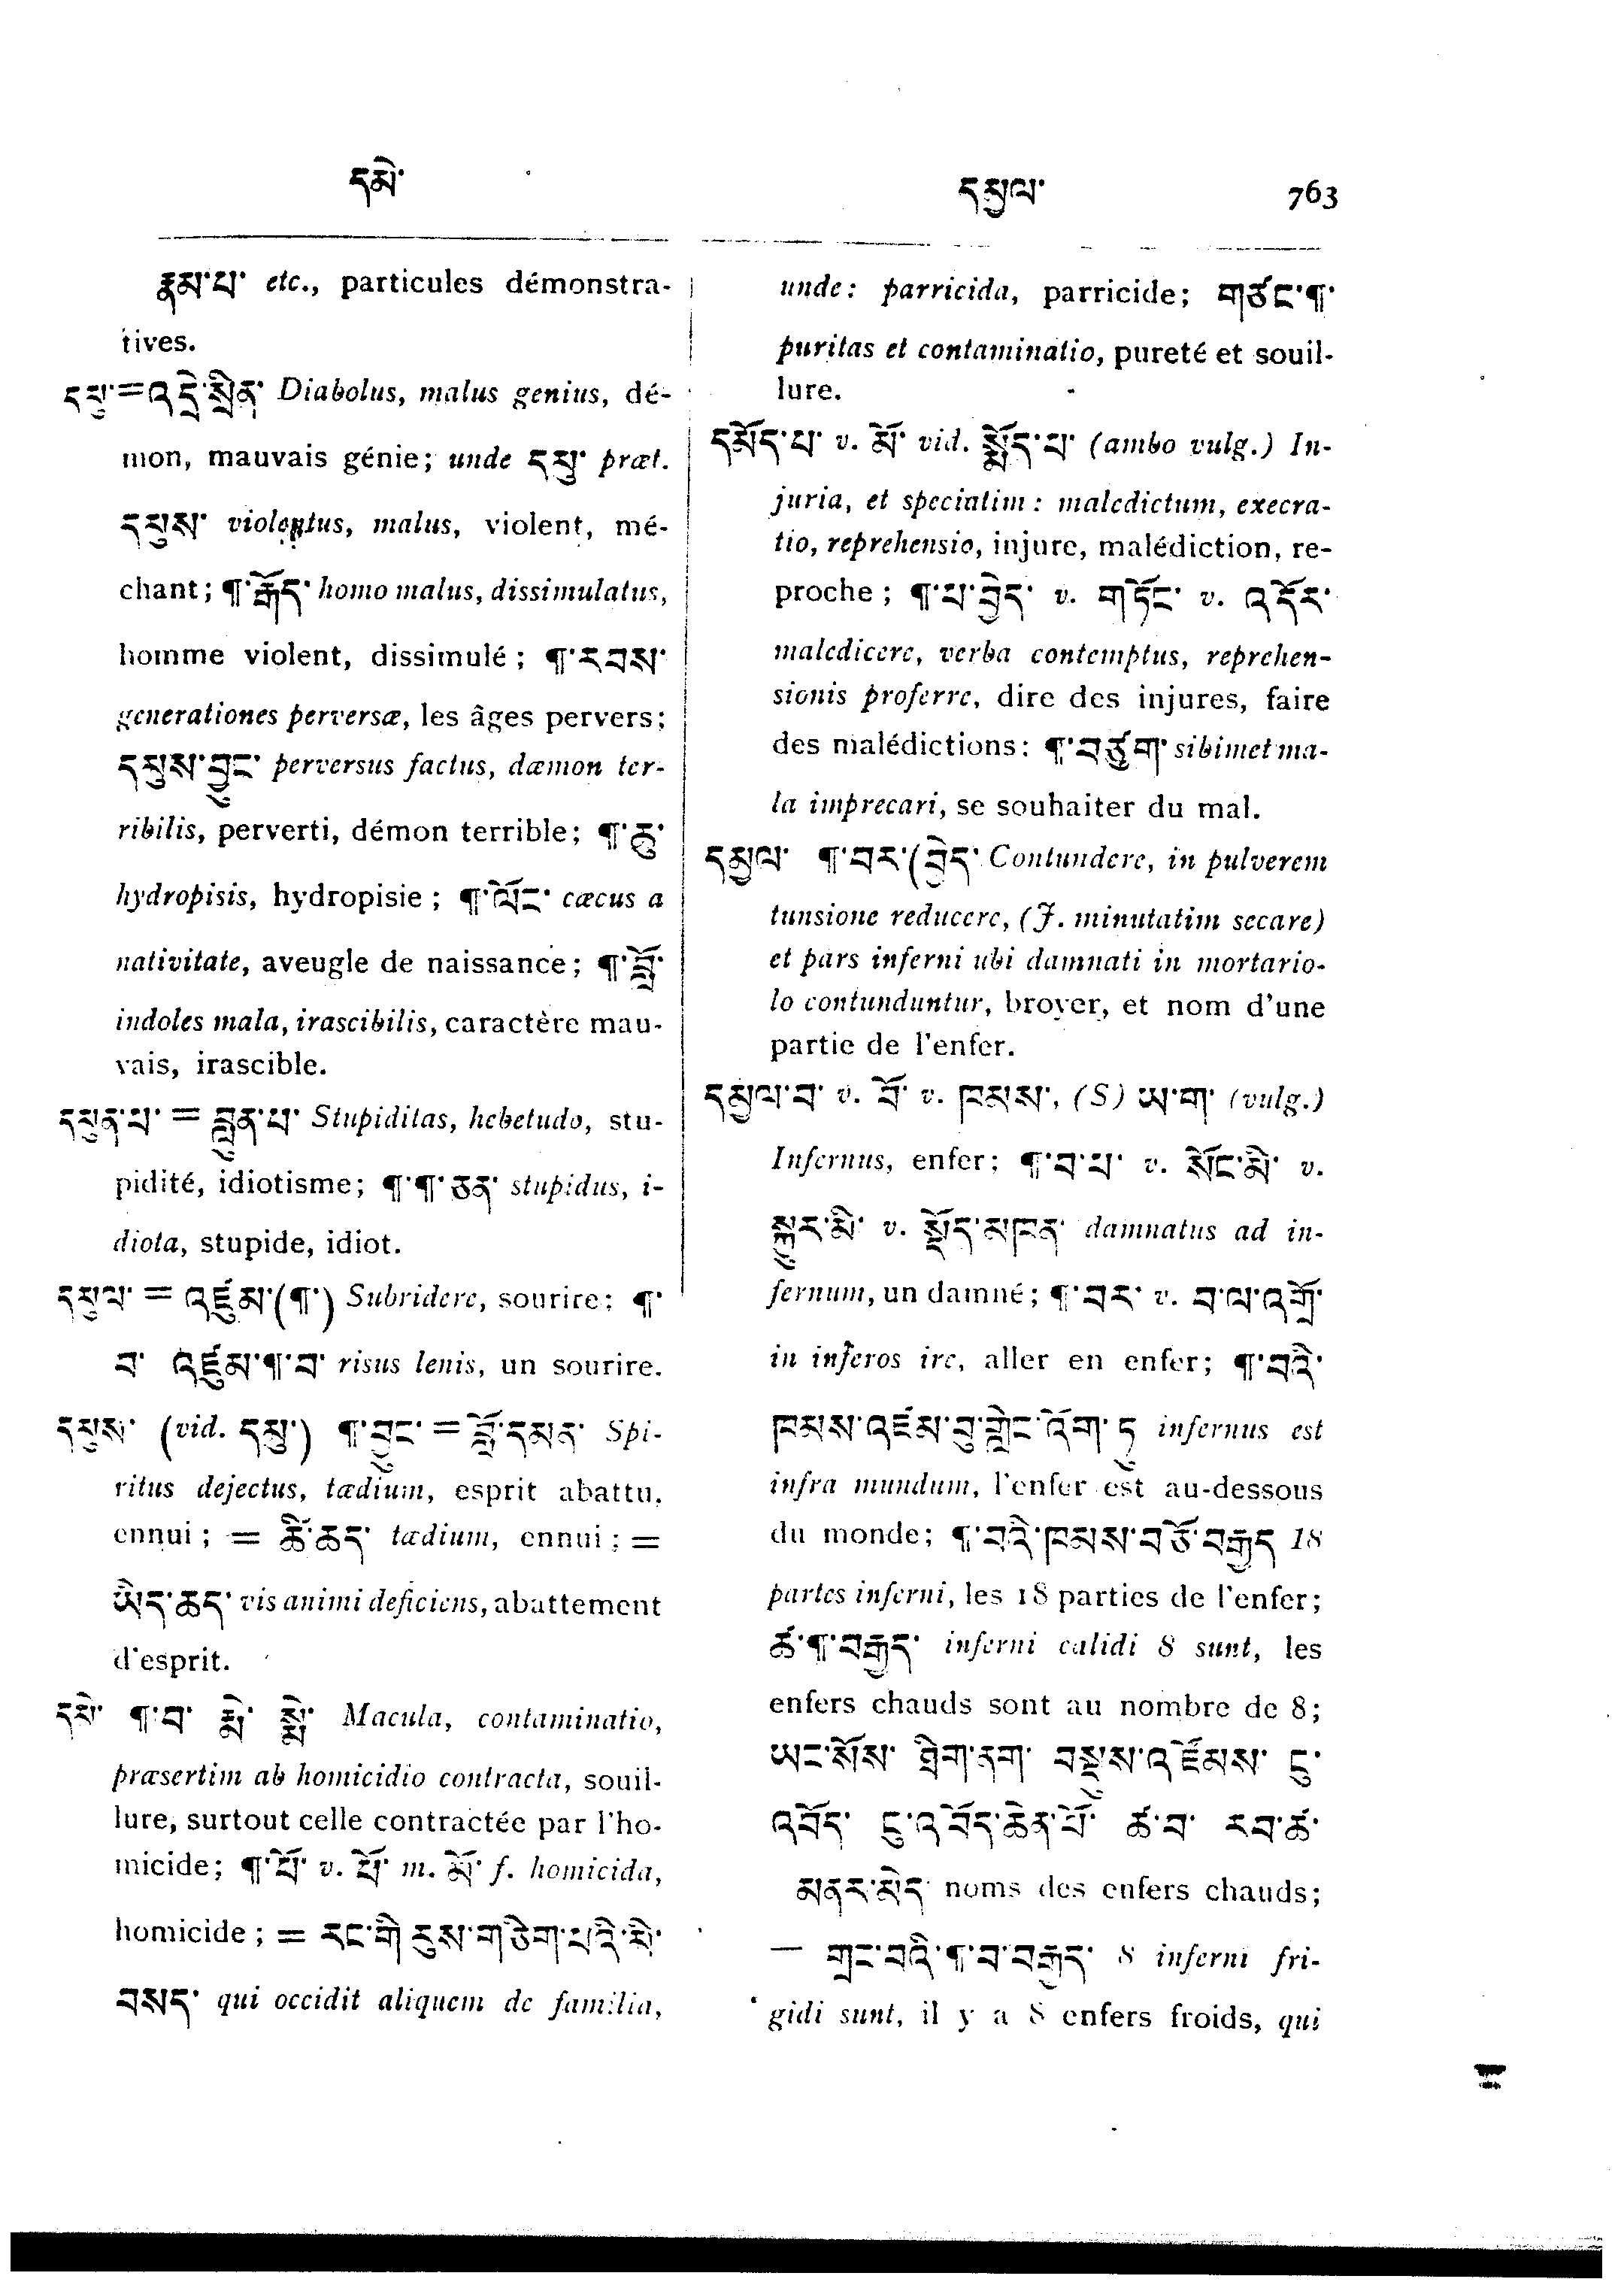 དམེ་
དམྱལ་ 763
རྣམ་པ་ etc., particules démonstra-
tives.
དམུ་=འདྲེ་སྲིན་ Diabolus, malus genius, dé-
mon, mauvais génie; unde དམུ་ præt.
དམུས་ violentus, malus, violent, mé-
chant; ¶་རྒོད་ homo malus, dissimulatus,
homme violent, dissimulé; ¶་རབས་
generationes perversæ, les âges pervers;
དམུས་བྱུང་ perversus factus, dæmon ter-
ribilis, perverti, démon terrible; ¶་ཆུ་
hydropisis, hydropisie; ¶་ལོང་ cæcus a
nativitate, aveugle de naissance; ¶་བློ་
indoles mala, irascibilis, caractère mau-
vais, irascible.
དམུན་པ་ = བླུན་པ་ Stupiditas, hebetudo, stu-
pidité, idiotisme; ¶་¶་ཅན་ stupidus, i-
diota, stupide, idiot.
དམུལ་ = འཛུམ་(¶་) Subridere, sourire; ¶་
བ་ འཛུམ་¶་བ་ risus lenis, un sourire.
དམུས་ (vid. དམུ་) ¶་བྱུང་ = བློ་དམན་ Spi-
ritus dejectus, tædium, esprit abattu,
ennui; = ཆི་ཆད་ tædium, ennui; =
ཡིད་ཆད་ vis animi deficiens, abattement
d'esprit.
དམེ་ ¶་བ་ རྨེ་ སྨེ་ Macula, contaminatio,
præsertim ab homicidio contracta, souil-
lure, surtout celle contractée par l'ho-
micide; ¶་བོ་ v. པོ་ m. མོ་ f. homicida,
homicide; = རང་གི་རུས་གཅིག་པའི་མི་
བསད་ qui occidit aliquem de familia,
unde: parricida, parricide; གཙང་¶་
puritas et contaminatio, pureté et souil-
lure.
དམོད་པ་ v. མོ་ vid. སྨོད་པ་ (ambo vulg.) In-
juria, et speciatim: maledictum, execra-
tio, reprehensio, injure, malédiction, re-
proche; ¶་པ་བྱེད་ v. གཏོང་ v. འདོར་
maledicere, verba contemptus, reprehen-
sionis proferre, dire des injures, faire
des malédictions: ¶་བཙུག་ sibimet ma-
la imprecari, se souhaiter du mal.
དམྱལ་ ¶་བར་(བྱེད་ Contundere, in pulverem
tunsione reducere, (J. minutatim secare)
et pars inferni ubi damnati in mortario-
lo contunduntur, broyer, et nom d'une
partie de l'enfer.
དམྱལ་བ་ v. བོ་ v. ཁམས་, (S) ཡ་ག་ (vulg.)
Infernus, enfer; ¶་བ་པ་ v. སོང་མི་ v.
སྐུར་མི་ v. སྡོད་མཁན་ damnatus ad in-
fernum, un damné; ¶་བར་ v. བ་ལ་འགྲོ་
in inferos ire, aller en enfer; ¶་བའི་
ཁམས་འཛམ་བུ་གླིང་འོག་ཏུ infernus est
infra mundum, l'enfer est au-dessous
du monde; ¶་བའི་ཁམས་བཅོ་བརྒྱད 18
partes inferni, les 18 parties de l'enfer;
ཚ་¶་བརྒྱད་ inferni calidi 8 sunt, les
enfers chauds sont au nombre de 8;
ཡང་སོས་ ཐིག་ནག་ བསྡུས་འཇོམས་ ངུ་
འབོད་ ངུ་འབོད་ཆེན་པོ་ ཚ་བ་ རབ་ཚ་
མནར་མེད་ noms des enfers chauds;
— གྲང་བའི་¶་བ་བརྒྱད་ 8 inferni fri-
gidi sunt, il y a 8 enfers froids, qui